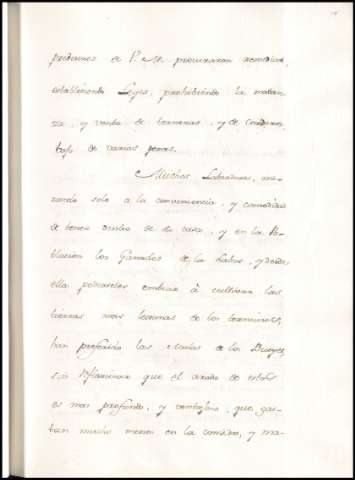 predecesores de V. M. procuraron remediar,
estableciendo Leyes, prohibiendo la matan-
za, y venta de terneras, y de Corderos,
bajo de varias penas.
Muchos Labradores, mi-
rando solo a la conveniencia, y comodidad
de tener dentro de su casa, y en la Po-
blacion los Ganados de la Labor, y desde
ella poderse embiar à cultivar las
tierras mas lexanas de los terminos,
han preferido las Mulas de los Bueyes,
sin reflexionar que el arado de estos
es mas profundo, y ventajoso, que gas-
tan mucho menos en la comida, y ma-